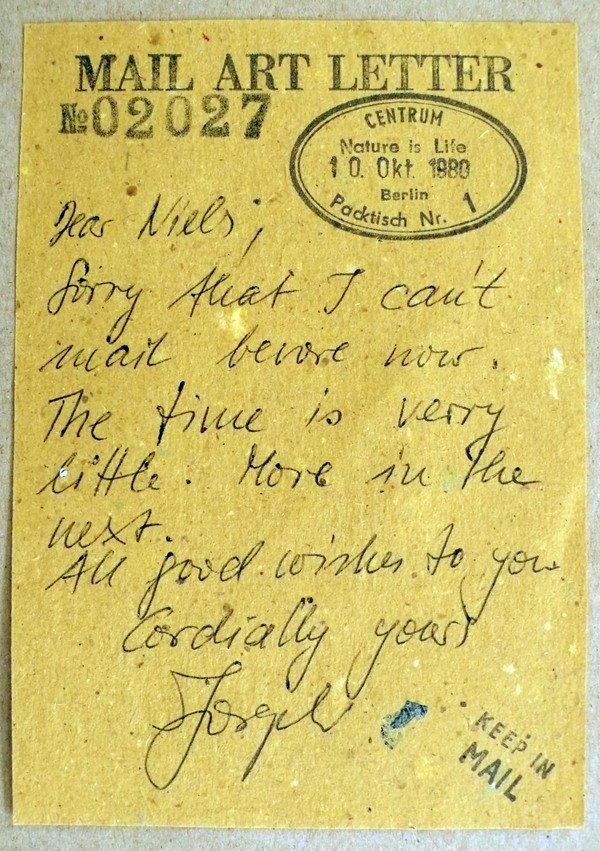 MAIL ART LETTER
№02027
CENTRUM
Nature is Life
10. Okt. 1980
Berlin
Packtisch Nr. 1
Dear Niels,
Sorry that I can't
mail bevore now.
The time is verry
little. More in the
next.
All good wishes to you
Cordially yours
Joseph
KEEP IN
MAIL